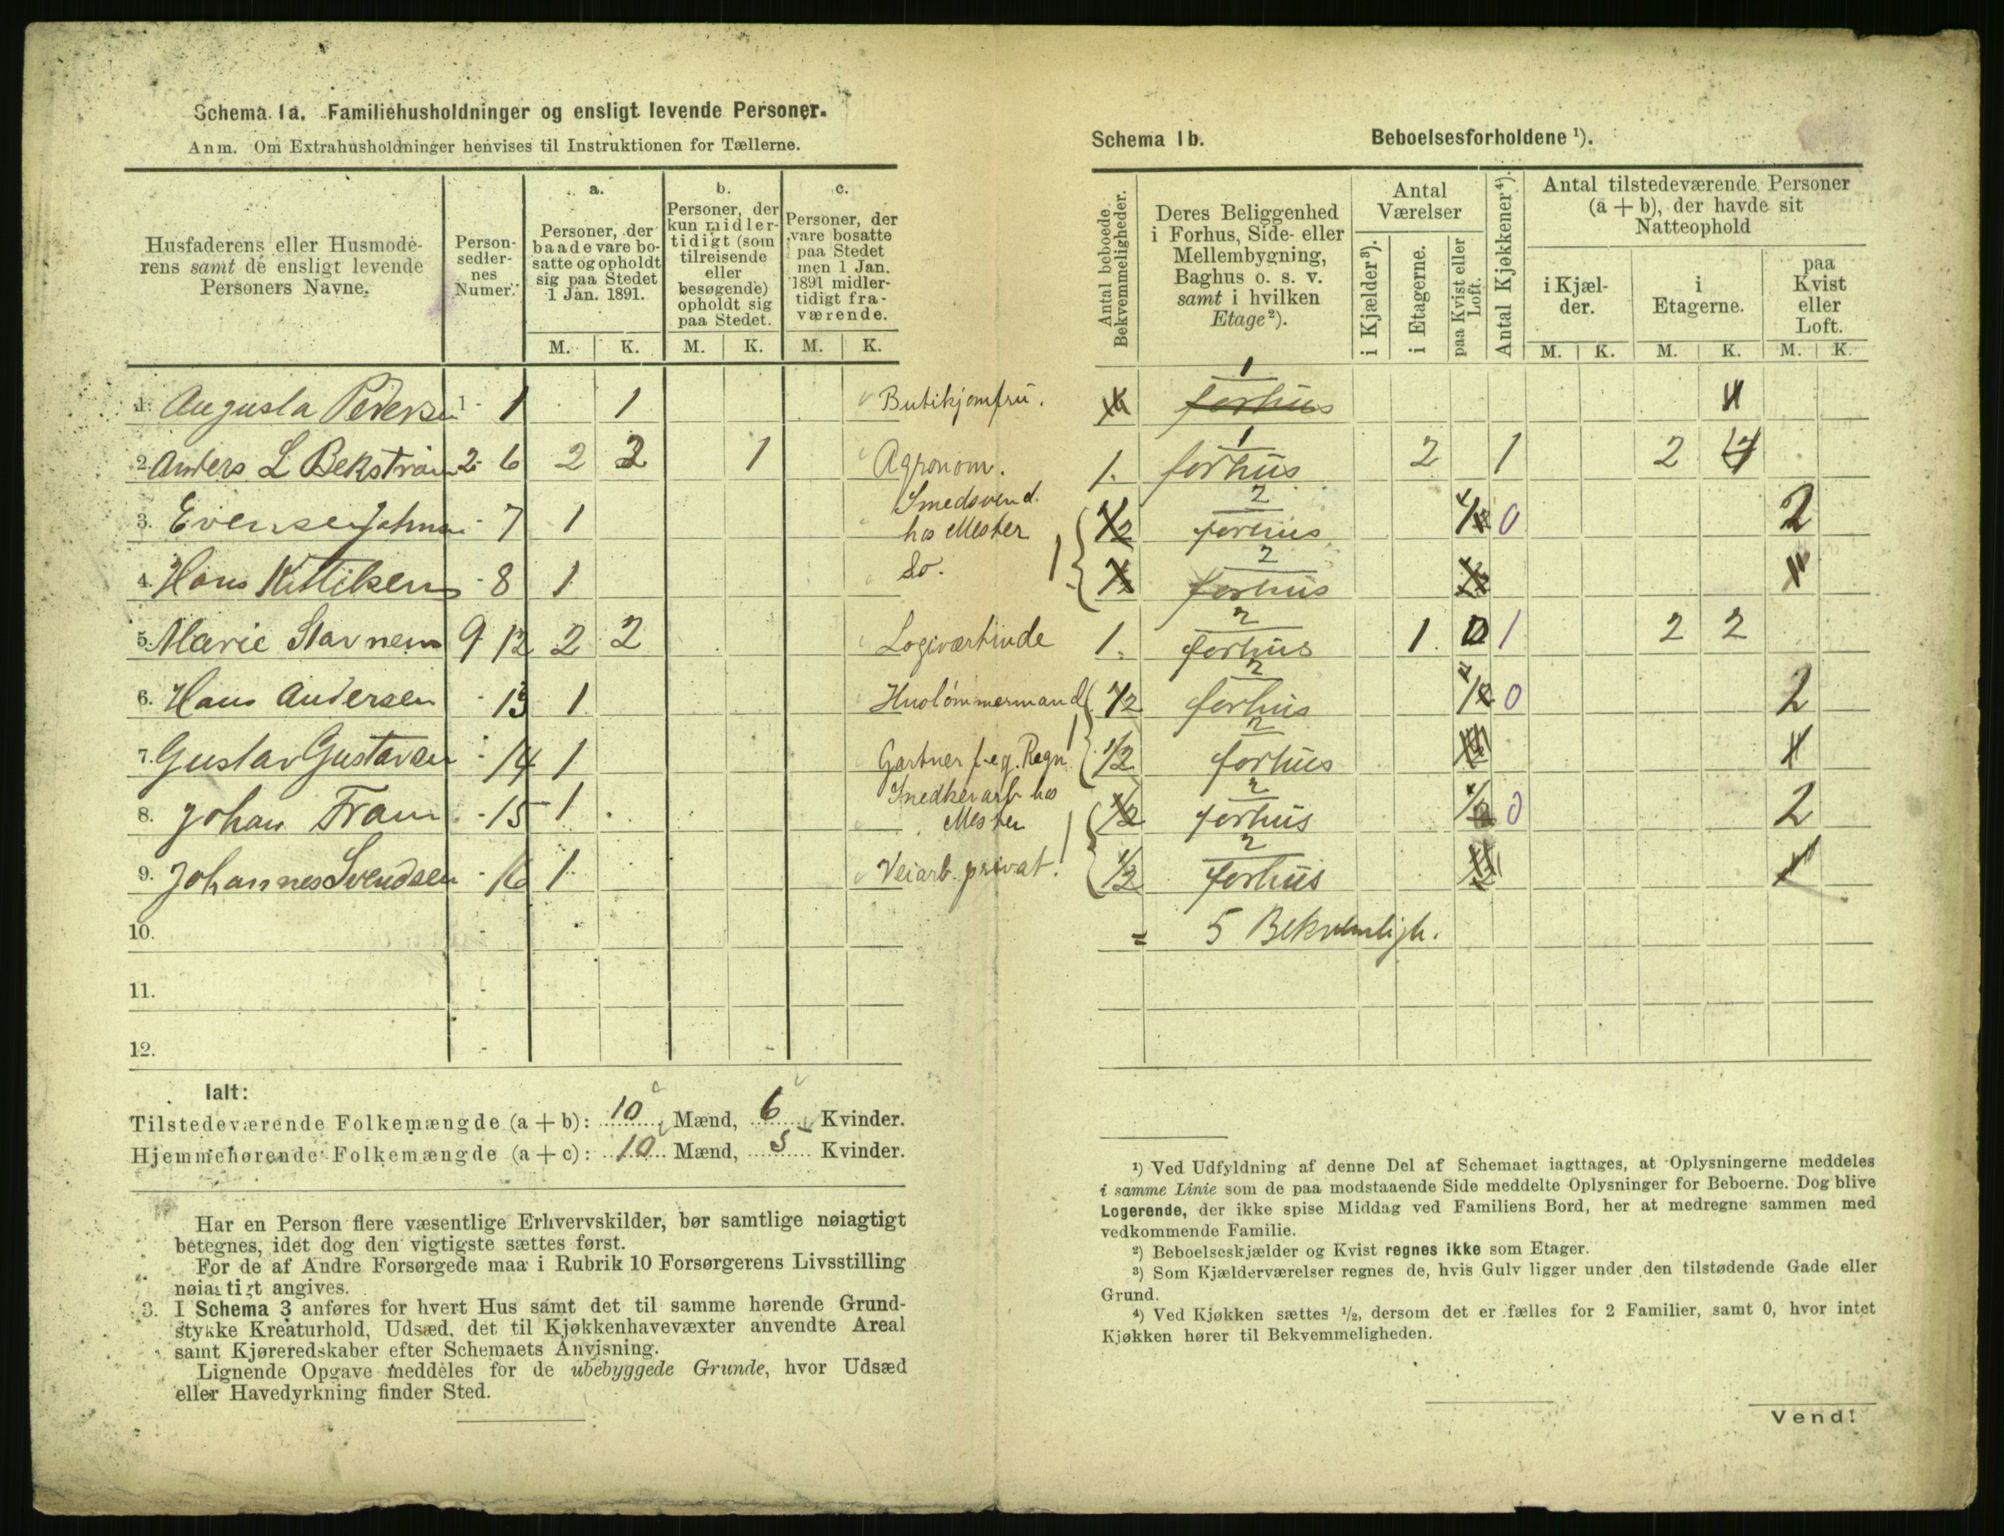 Schema 1a. Familiehusholdninger og ensligt levende Personer.
Anm. Om Extrahusholdninger henvises til Instruktionen for Tællerne.
Husfaderens eller Husmode-
rens samt de ensligt levende
Personers Navne.
Person-
sedler-
nes
Numer.
a.
Personer, der
baade vare bo-
satte og opholdt
sig paa Stedet
1 Jan. 1891.
b.
Personer, der
kun midler-
tidigt (som
tilreisende
eller
besøgende)
opholdt sig
paa Stedet.
c.
Personer, der
vare bosatte
paa Stedet
men 1 Jan.
1891 midler-
tidigt fra-
værende.
M. K. M. K. M. K.
1. Augusta Pedersen 1 - 1 1 Butikjomfru.
2. Anders L Bekstrøm 2 - 6 2 3 1 Agronom.
3. Evensen Johna - 7 1 Smedsvend
hos Mester
4. Hans Kittilsen - 8 1 Do.
5. Marie Stavnem 9 12 2 2 Logiværtinde
6. Hans Andersen - 13 1 Hustømmermand
7. Gustav Gustavsen - 14 1 Gartner f. eg. Regn.
8. Johan Fram - 15 1 Snedkerarb hos
Mester
9. Johannes Svendsen - 16 1 Veiarb. privat.
10.
11.
12.
Ialt:
Tilstedeværende Folkemængde (a + b): 10 Mænd, 6 Kvinder.
Hjemmehørende Folkemængde (a + c): 10 Mænd, 5 Kvinder.
Har en Person flere væsentlige Erhvervskilder, bør samtlige nøiagtigt
betegnes, idet dog den vigtigste sættes først.
For de af Andre Forsørgede maa i Rubrik 10 Forsørgerens Livsstilling
nøiagtigt angives.
3. I Schema 3 anføres for hvert Hus samt det til samme hørende Grund-
stykke Kreaturhold, Udsæd, det til Kjøkkenhavevæxter anvendte Areal
samt Kjøreredskaber efter Schemaets Anvisning.
Lignende Opgave meddeles for de ubebyggede Grunde, hvor Udsæd
eller Havedyrkning finder Sted.
Schema 1b. Beboelsesforholdene ¹).
Antal beboede
Bekvemmeligheder.
Deres Beliggenhed
i Forhus, Side- eller
Mellembygning,
Baghus o. s. v.
samt i hvilken
Etage²).
Antal
Værelser
i Kjælder³).
i Etagerne.
paa Kvist eller
Loft.
Antal Kjøkkener⁴).
Antal tilstedeværende Personer
(a + b), der havde sit
Natteophold
i Kjæl-
der.
i
Etagerne.
paa
Kvist
eller
Loft.
M. K. M. K. M. K.
1
forhus
1
1. forhus 2 1 2 4
2
1/2 forhus 0 2
2
forhus
2
1. forhus 1 0 1 2 2
2
1/2 forhus 0 2
2
1/2 forhus
2
1/2 forhus 0 2
2
1/2 forhus
= 5 Bekvemligh.
¹) Ved Udfyldning af denne Del af Schemaet iagttages, at Oplysningerne meddeles
i samme Linie som de paa modstaaende Side meddelte Oplysninger for Beboerne. Dog blive
Logerende, der ikke spise Middag ved Familiens Bord, her at medregne sammen med
vedkommende Familie.
²) Beboelseskjælder og Kvist regnes ikke som Etager.
³) Som Kjælderværelser regnes de, hvis Gulv ligger under den tilstødende Gade eller
Grund.
⁴) Ved Kjøkken sættes ½, dersom det er fælles for 2 Familier, samt 0, hvor intet
Kjøkken hører til Bekvemmeligheden.
Vend!